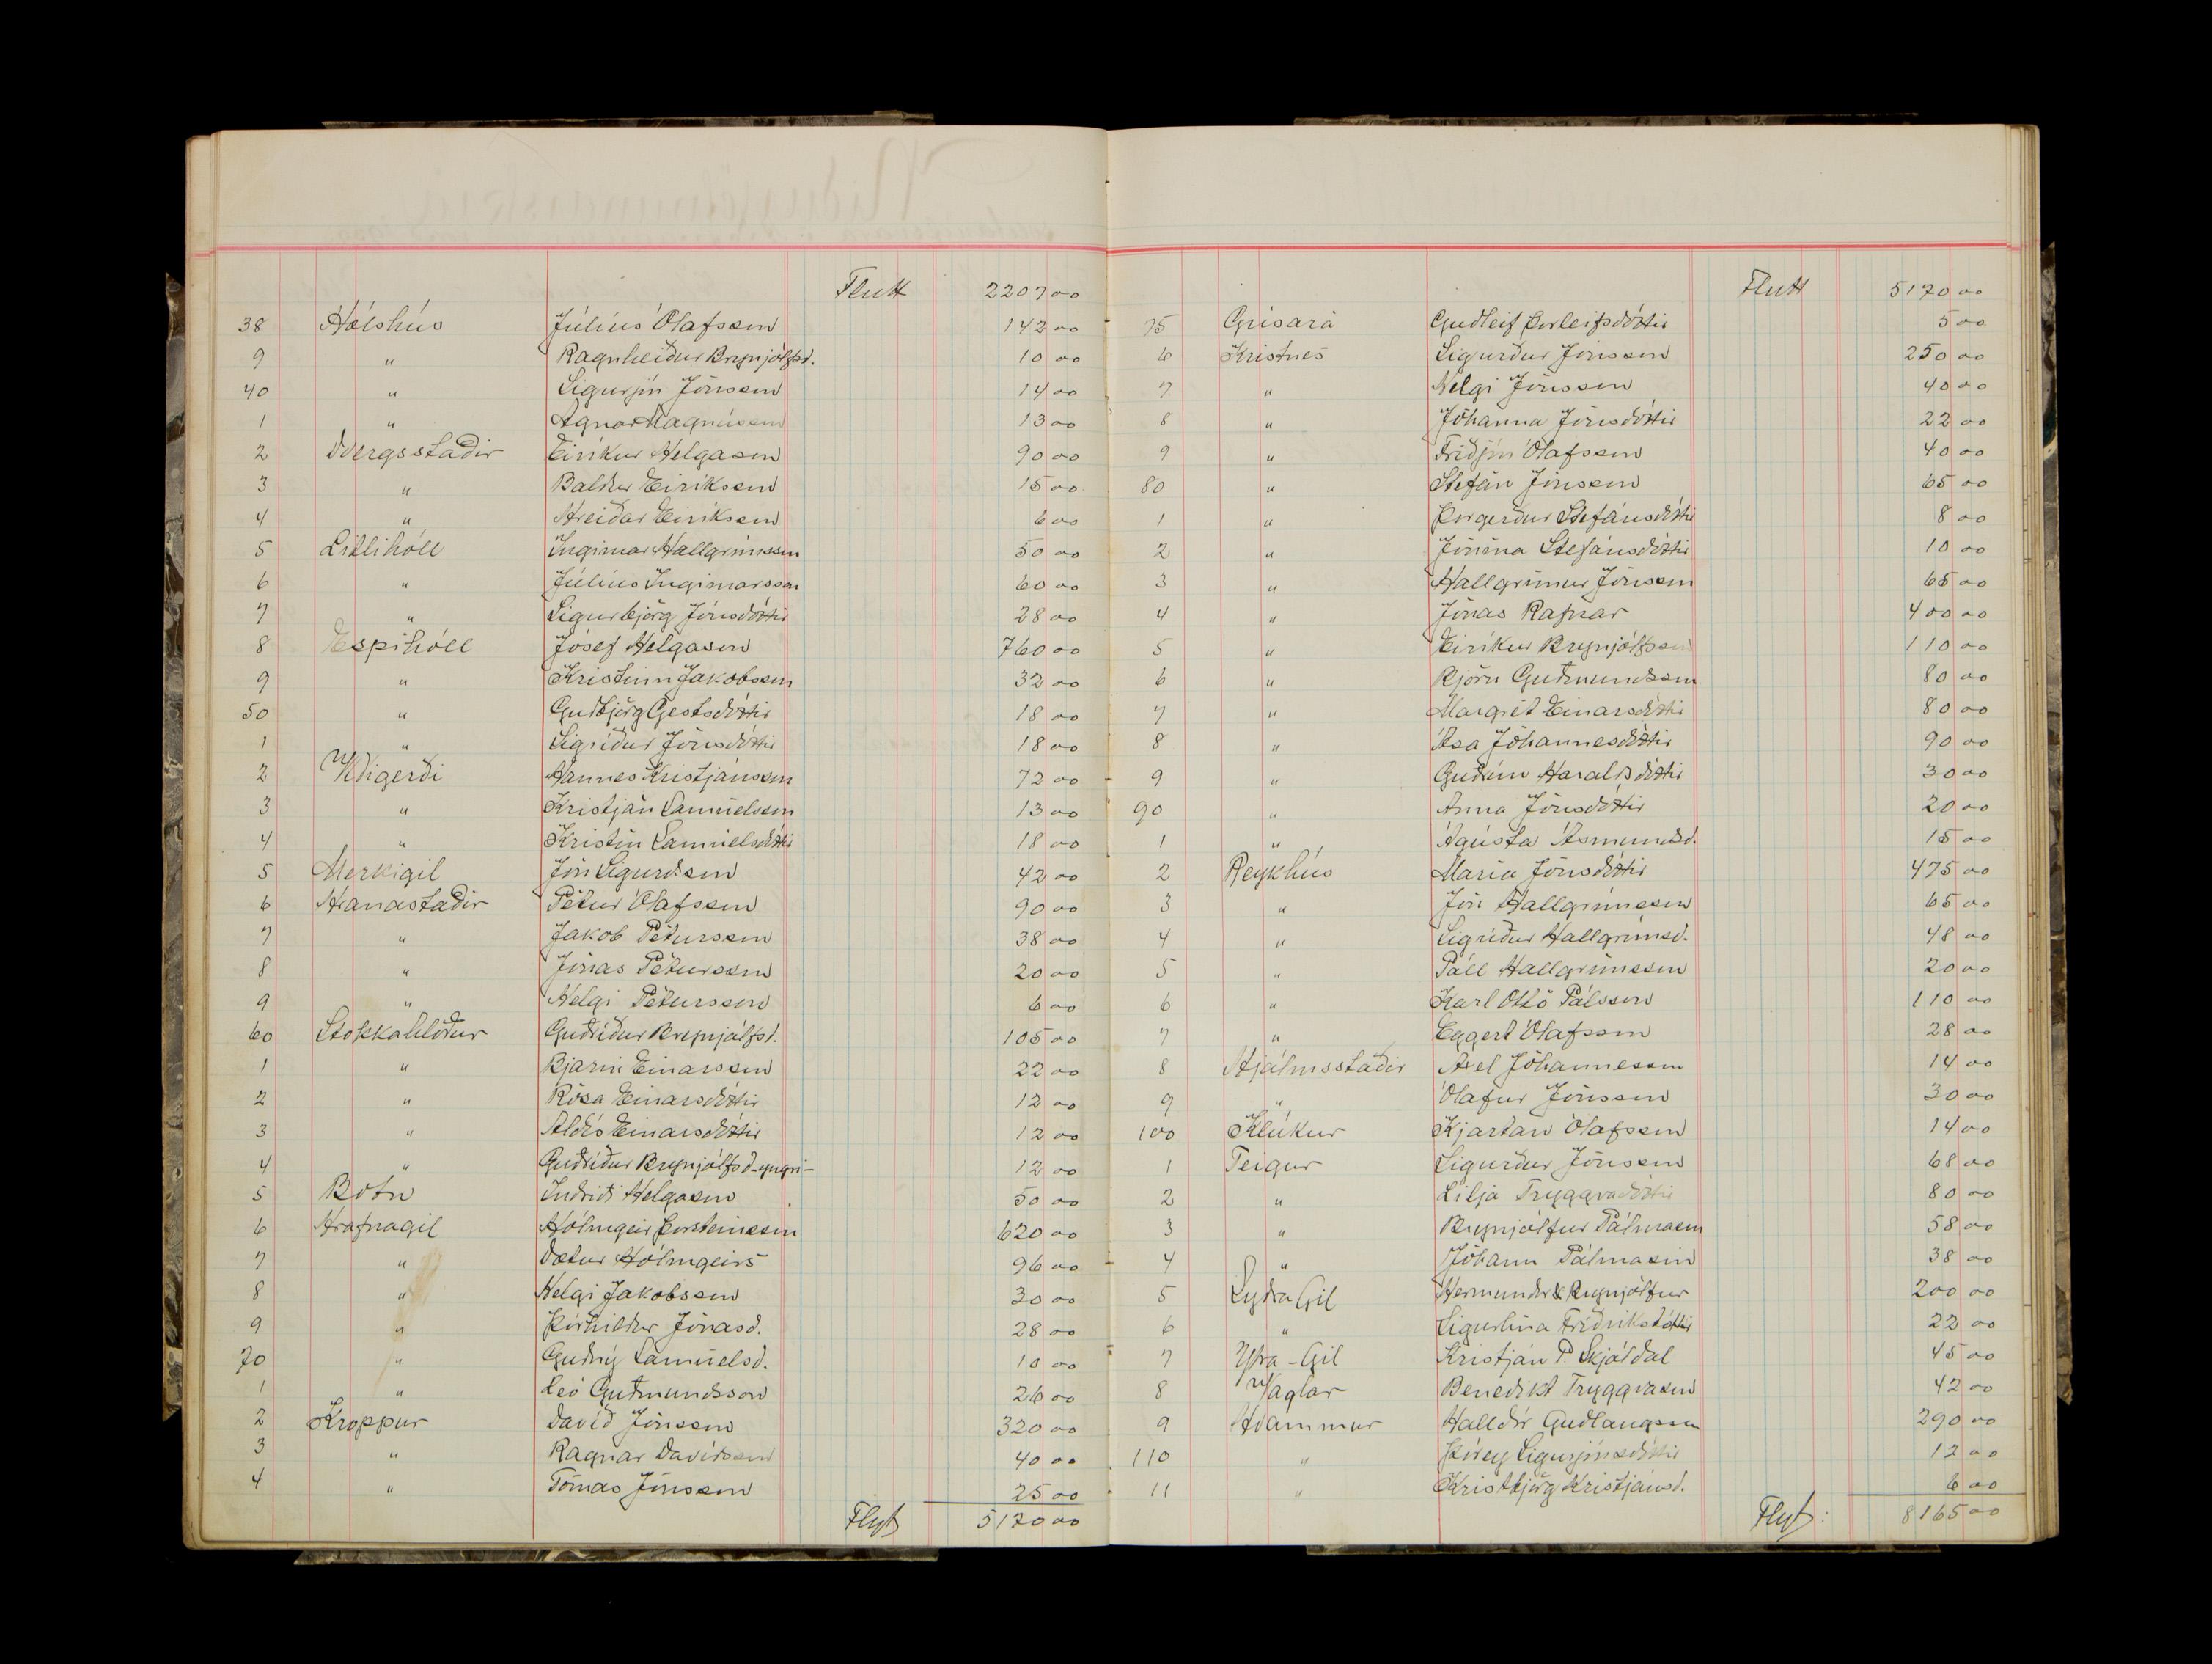 Flutt 2207 00
38 Hólshús Júlíus Ólafsson 142 00
9 " Ragnheiður Brynjólfsd. 10 00
40 " Sigurjón Jónsson 14 00
1 " Agnar Magnússon 13 00
2 Dvergsstaðir Eiríkur Helgason 90 00
3 " Baldur Eiríksson 15 00
4 " Hreiðar Eiríksson 6 00
5 Litlihóll Ingimar Hallgrímsson 50 00
6 " Júlíus Ingimarsson 60 00
7 " Sigurbjörg Jónsdóttir 28 00
8 Espihóll Jósef Helgason 760 00
9 " Kristinn Jakobsson 32 00
50 " Guðbjörg Gestsdóttir 18 00
1 " Sigríður Jónsdóttir 18 00
2 Víðigerði Hannes Kristjánsson 72 00
3 " Kristján Samúelsson 13 00
4 " Kristín Samúelsdóttir 18 00
5 Merkigil Jón Sigurðsson 42 00
6 Hranastaðir Pétur Ólafsson 90 00
7 " Jakob Pétursson 38 00
8 " Jónas Pétursson 20 00
9 " Helgi Pétursson 6 00
60 Stokkahlöður Guðríður Brynjólfsd. 105 00
1 " Bjarni Einarsson 22 00
2 " Rósa Einarsdóttir 12 00
3 " Aldís Einarsdóttir 12 00
4 " Guðríður Brynjólfsd-yngri- 12 00
5 Botn Indriði Helgason 50 00
6 Hrafnagil Hólmgeir Þorsteinsson 620 00
7 " Dætur Hólmgeirs 96 00
8 " Helgi Jakobsson 30 00
9 " Þórhildur Jónasd. 28 00
70 " Guðný Samúelsd. 10 00
1 " Leó Guðmundsson 26 00
2 Kroppur Davíð Jónsson 320 00
3 " Ragnar Davíðsson 40 00
4 " Tómas Jónsson 25 00
Flyt 5170 00
Flutt 5170 00
75 Grísará Guðleif Þorleifsdóttir 5 00
6 Kristnes Sigurður Jónsson 250 00
7 " Helgi Jónsson 40 00
8 " Jóhanna Jónsdóttir 22 00
9 " Friðjón Ólafsson 40 00
80 " Stefán Jónsson 65 00
1 " Þorgerður Stefánsdóttir 8 00
2 " Jónína Stefánsdóttir 10 00
3 " Hallgrímur Jónsson 65 00
4 " Jónas Rafnar 400 00
5 " Eiríkur Brynjólfsson 110 00
6 " Björn Guðmundsson 80 00
7 " Margrét Einarsdóttir 80 00
8 " Ása Jóhannesdóttir 90 00
9 " Guðrún Haraldsdóttir 30 00
90 " Anna Jónsdóttir 20 00
1 " Ágústa Ásmundsd. 15 00
2 Reykhús María Jónsdóttir 475 00
3 " Jón Hallgrímsson 65 00
4 " Sigríður Hallgrímsd. 48 00
5 " Páll Hallgrímsson 20 00
6 " Karl Ottó Pálsson 110 00
7 " Eggert Ólafsson 28 00
8 Hjálmsstaðir Axel Jóhannesson 14 00
9 " Ólafur Jónsson 30 00
100 Klúkur Kjartan Ólafsson 14 00
1 Teigur Sigurður Jónsson 68 00
2 " Lilja Tryggvadóttir 80 00
3 " Brynjólfur Pálmason 58 00
4 " Jóhann Pálmason 38 00
5 Syðra Gil Hermundur & Brynjólfur 200 00
6 " Sigurlína Friðriksdóttir 22 00
7 Ytra-Gil Kristján P. Skjóldal 45 00
8 Vaglar Benedikt Tryggvason 42 00
9 Hvammur Halldór Guðlaugsson 290 00
110 " Þórey Sigurjónsdóttir 12 00
11 " Kristbjörg Kristjánsd. 6 00
Flyt: 8165 00